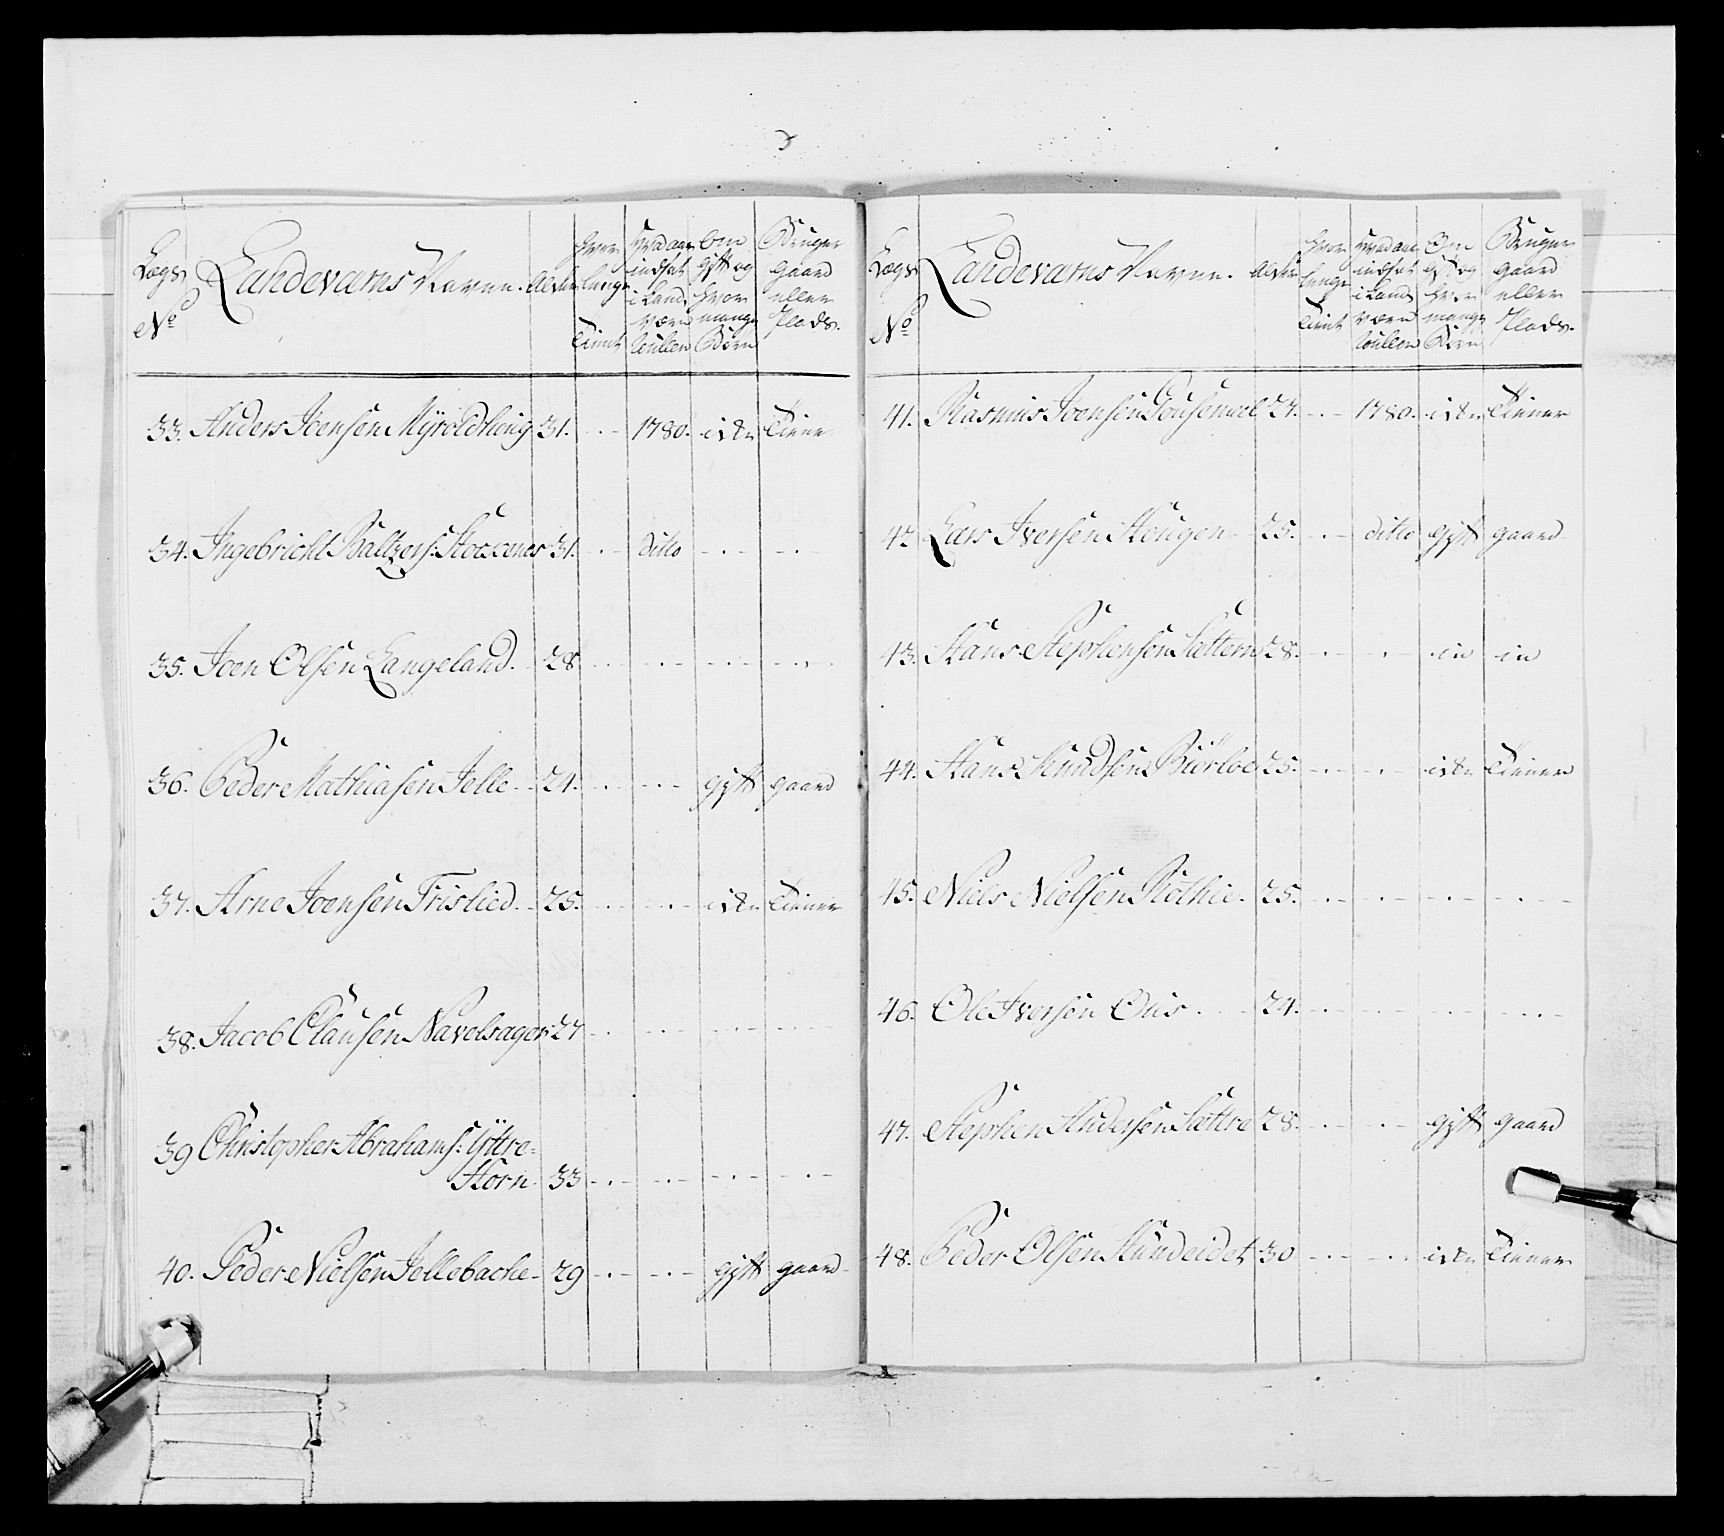 Lægs No Landeværns Navne. Alder hvor længe Tient hvad aar indsat i Land Værn Rullen Om gift og hvor mange Børn Bruger gaard eller Plads.
33. Anders Joensen Myroldhoug 31. - . - 1780. icke Tiener
34. Ingebricht Baltzers: 31. - . - ditto - . - - . -
35. Joen Olsen Langeland. 28 - . - - . - - . - - . -
36. Peder Mathiasen Jelle 24. - . - - . - gift gaard
37. Arne Joensen Frislied. 25. - . - - . - icke Tiener
38. Jacob Clausen Navelsager 27 - . - - . - - . - - . -
39 Christopher Abrahams: Yttre-
Horn 33 - . - - . - - . - - . -
40. Peder Nielsen Jollebache 29 - . - - . - gift gaard
Lægs No Landeværns Navne. Alder hvor længe Tient hvad aar indsat i Land Værn Rullen Om gift og hvor mange Børn Bruger gaard eller Plads.
41. Rasmus Joensen 27. - . - 1780. icke Tiener
42 Lars Iversen Hougen 25. - . - ditto gift gaard
43. Hans Stephensen Sættern 28. - . - - . - in in
44. Hans Knudsen Biørloe 25. - . - - . - icke Tiener
45. Niels Nielsen Rothie. 25. - . - - . - - . - - . -
46. Ole Iversen Ous 24. - . - - . - - . - - . -
47. Stephen Andersen Sættre 28. - . - - . - gift gaard
48. Peder Olsen Hundeidet 30 - . - - . - icke Tiener